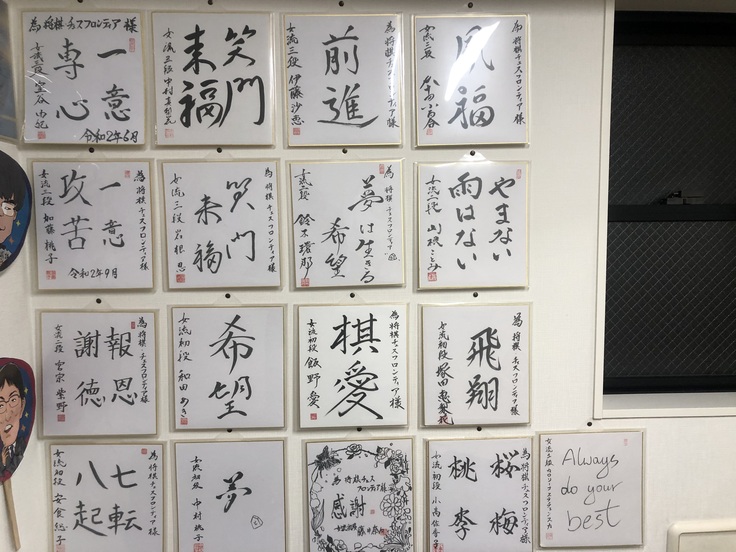 為将棋チェスフロンティア様
一意
専心
女流三段 室谷由紀
令和2年6月
笑門
来福
女流三段 中村真梨花
為将棋チェスフロンティア様
前進
女流三段 伊藤沙恵
為将棋チェスフロンティア様
福
女流二段
為将棋チェスフロンティア様
一意
攻苦
女流二段 加藤桃子
令和2年9月
笑門
来福
女流三段
為将棋チェスフロンティア様
夢は生きる
希望
女流二段 鈴木環那
為将棋チェスフロンティア様
やまない
雨はない
女流二段 山根ことみ
為将棋チェスフロンティア様
報恩
謝徳
女流二段
希望
女流初段 和田あき
為将棋チェスフロンティア様
棋愛
女流初段 飯野愛
為将棋チェスフロンティア様
飛翔
女流初段 塚田恵梨花
為将棋チェスフロンティア様
七転
八起
女流初段
夢
女流初段 中村桃子
為将棋チェス
フロンティア様
感謝
為将棋チェスフロンティア様
桜梅
桃李
女流初段 小高佐季子
Always
do your
best